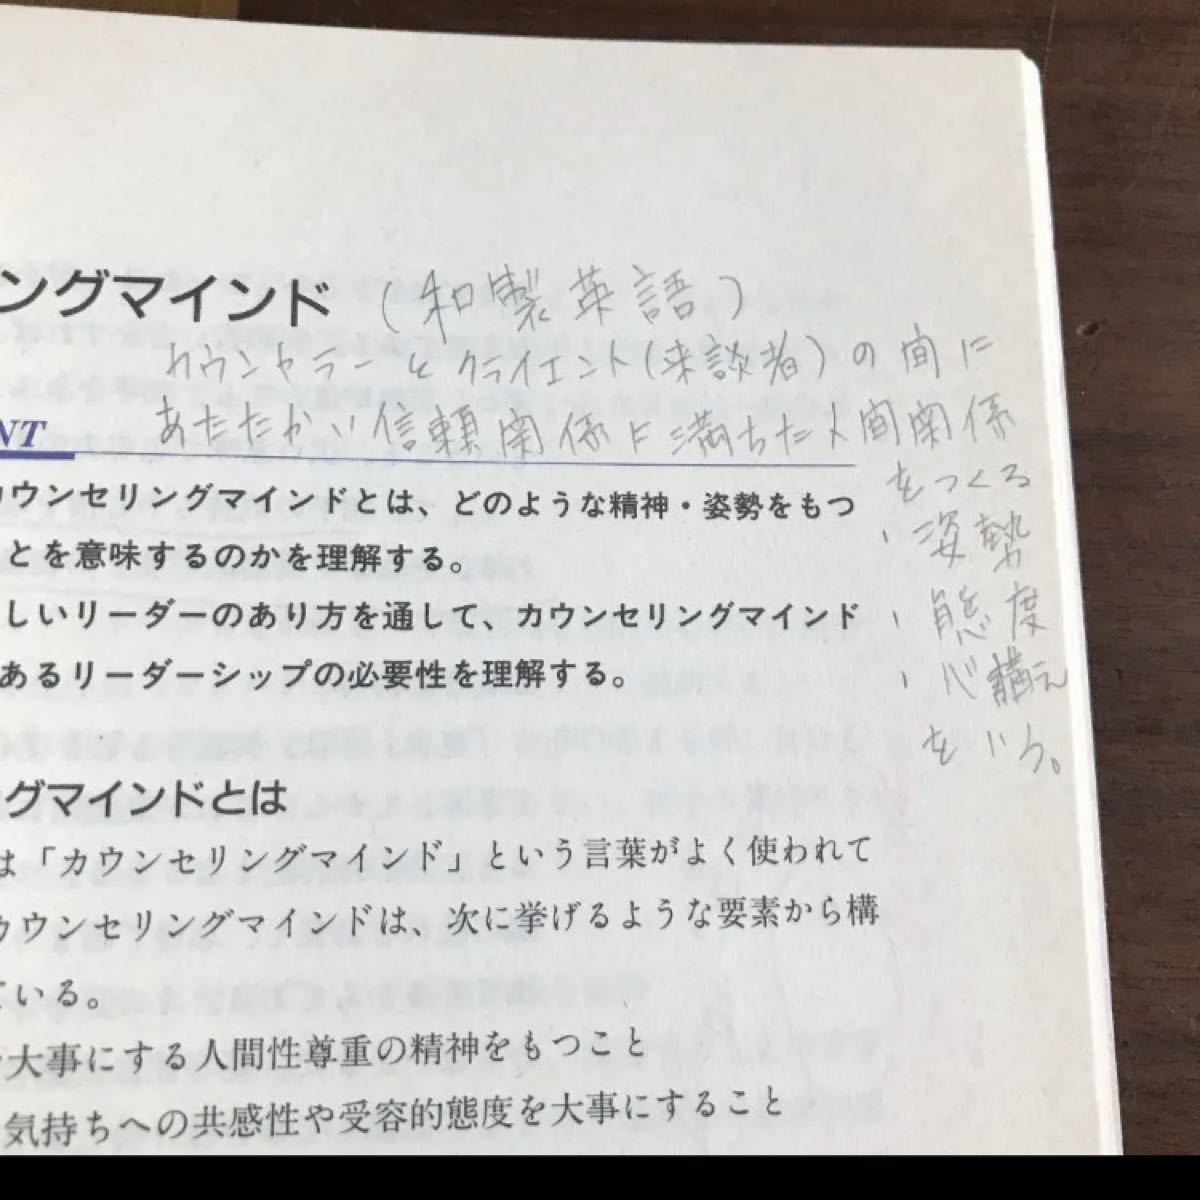 ングマインド (和製英語)
カウンセラーとクライエント(来談者)の間に
あたたかい信頼関係に満ちた人間関係
NT
をつくる
カウンセリングマインドとは、どのような精神・姿勢をもつ
・姿勢
ことを意味するのかを理解する。
しいリーダーのあり方を通して、カウンセリングマインド
・態度
あるリーダーシップの必要性を理解する。
・心構え
をいう。
グマインドとは
は「カウンセリングマインド」という言葉がよく使われて
カウンセリングマインドは、次に挙げるような要素から構
ている。
大事にする人間性尊重の精神をもつこと
気持ちへの共感性や受容的態度を大事にすること